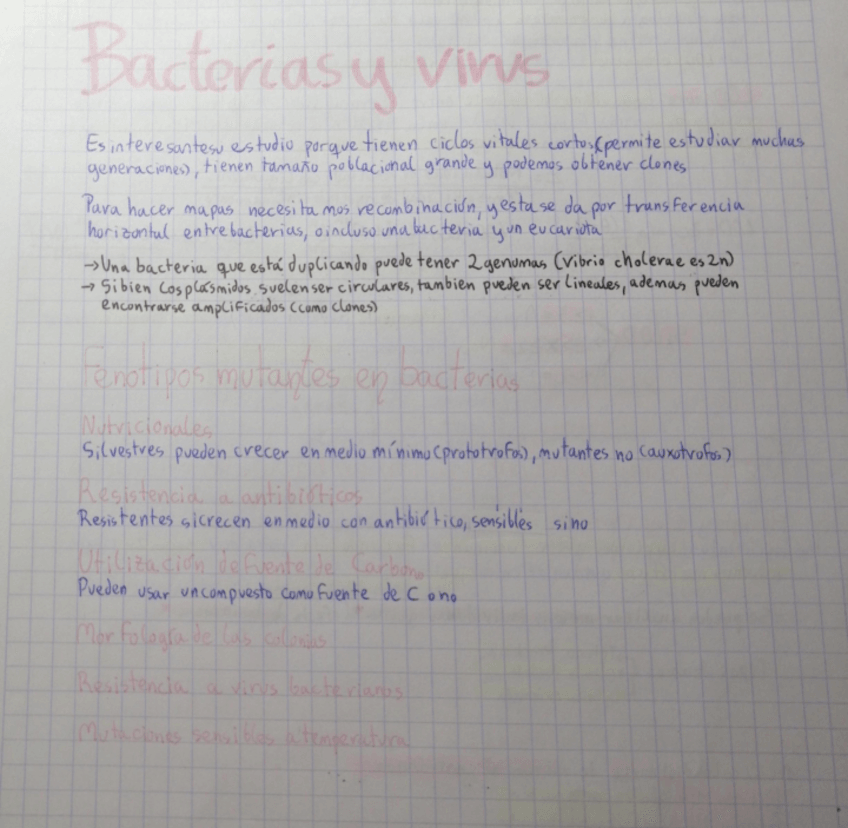 Bacterias y virus
Es interesante su estudio porque tienen ciclos vitales cortos (permite estudiar muchas
generaciones), tienen tamaño poblacional grande y podemos obtener clones
Para hacer mapas necesitamos recombinación, y esta se da por transferencia
horizontal entre bacterias, o incluso una bacteria y un eucariota
→ Una bacteria que está duplicando puede tener 2 genomas (Vibrio cholerae es 2n)
→ Si bien los plásmidos suelen ser circulares, tambien pueden ser lineales, ademas pueden
encontrarse amplificados (como clones)
Fenotipos mutantes en bacterias
Nutricionales
Silvestres pueden crecer en medio mínimo (prototrofos), mutantes no (auxotrofos)
Resistencia a antibióticos
Resistentes si crecen en medio con antibiótico, sensibles si no
Utilización de fuente de Carbono
Pueden usar un compuesto como fuente de C o no
Morfología de las colonias
Resistencia a virus bacterianos
Mutaciones sensibles a temperatura